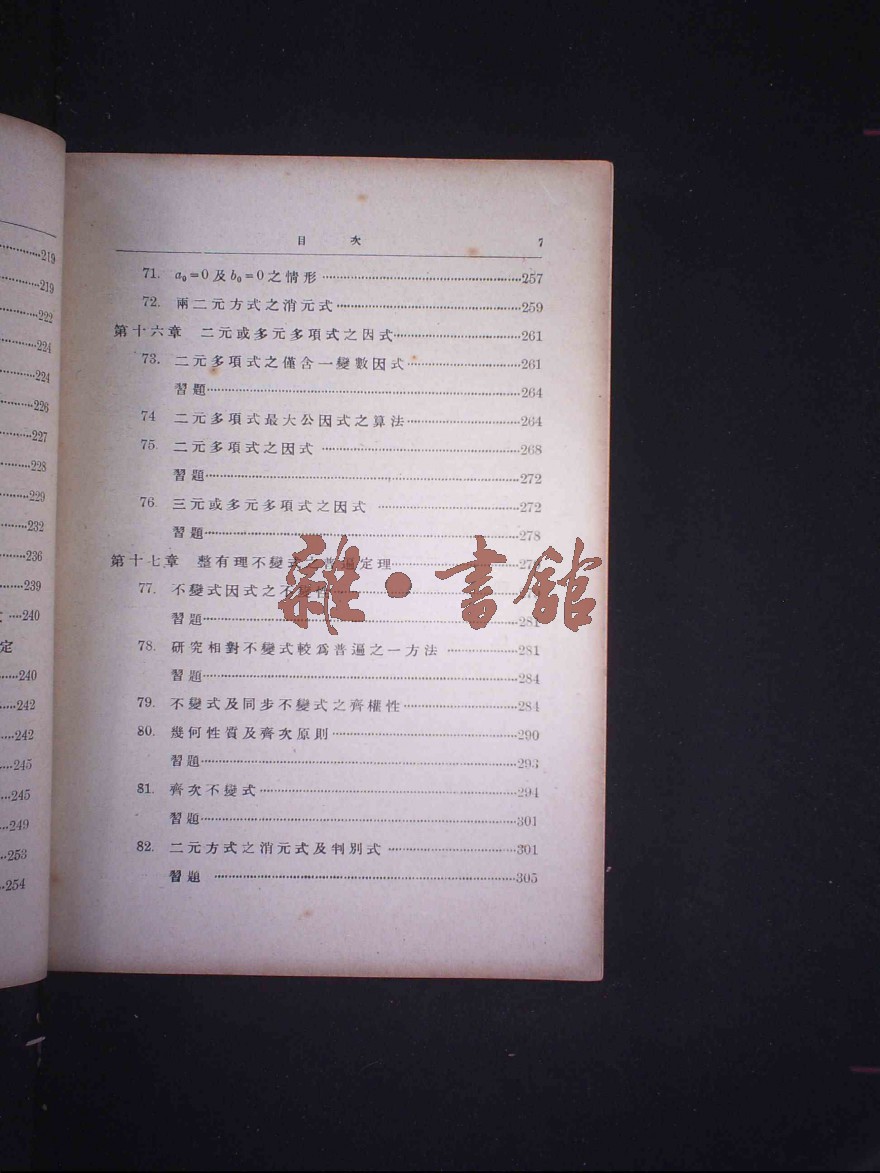 219
219
222
224
224
226
227
228
229
232
236
239
240
定
240
242
242
245
245
249
253
254
目 次 7
71. a₀=0及b₀=0之情形 257
72. 兩二元方式之消元式 259
第十六章 二元或多元多項式之因式 261
73. 二元多項式之僅含一變數因式 261
習題 264
74 二元多項式最大公因式之算法 264
75. 二元多項式之因式 268
習題 272
76. 三元或多元多項式之因式 272
習題 278
第十七章 整有理不變式之普遍定理
77. 不變式因式之不變性
習題 281
78. 研究相對不變式較爲普遍之一方法 281
習題 284
79. 不變式及同步不變式之齊權性 284
80. 幾何性質及齊次原則 290
習題 293
81. 齊次不變式 294
習題 301
82. 二元方式之消元式及判別式 301
習題 305
雜·書館